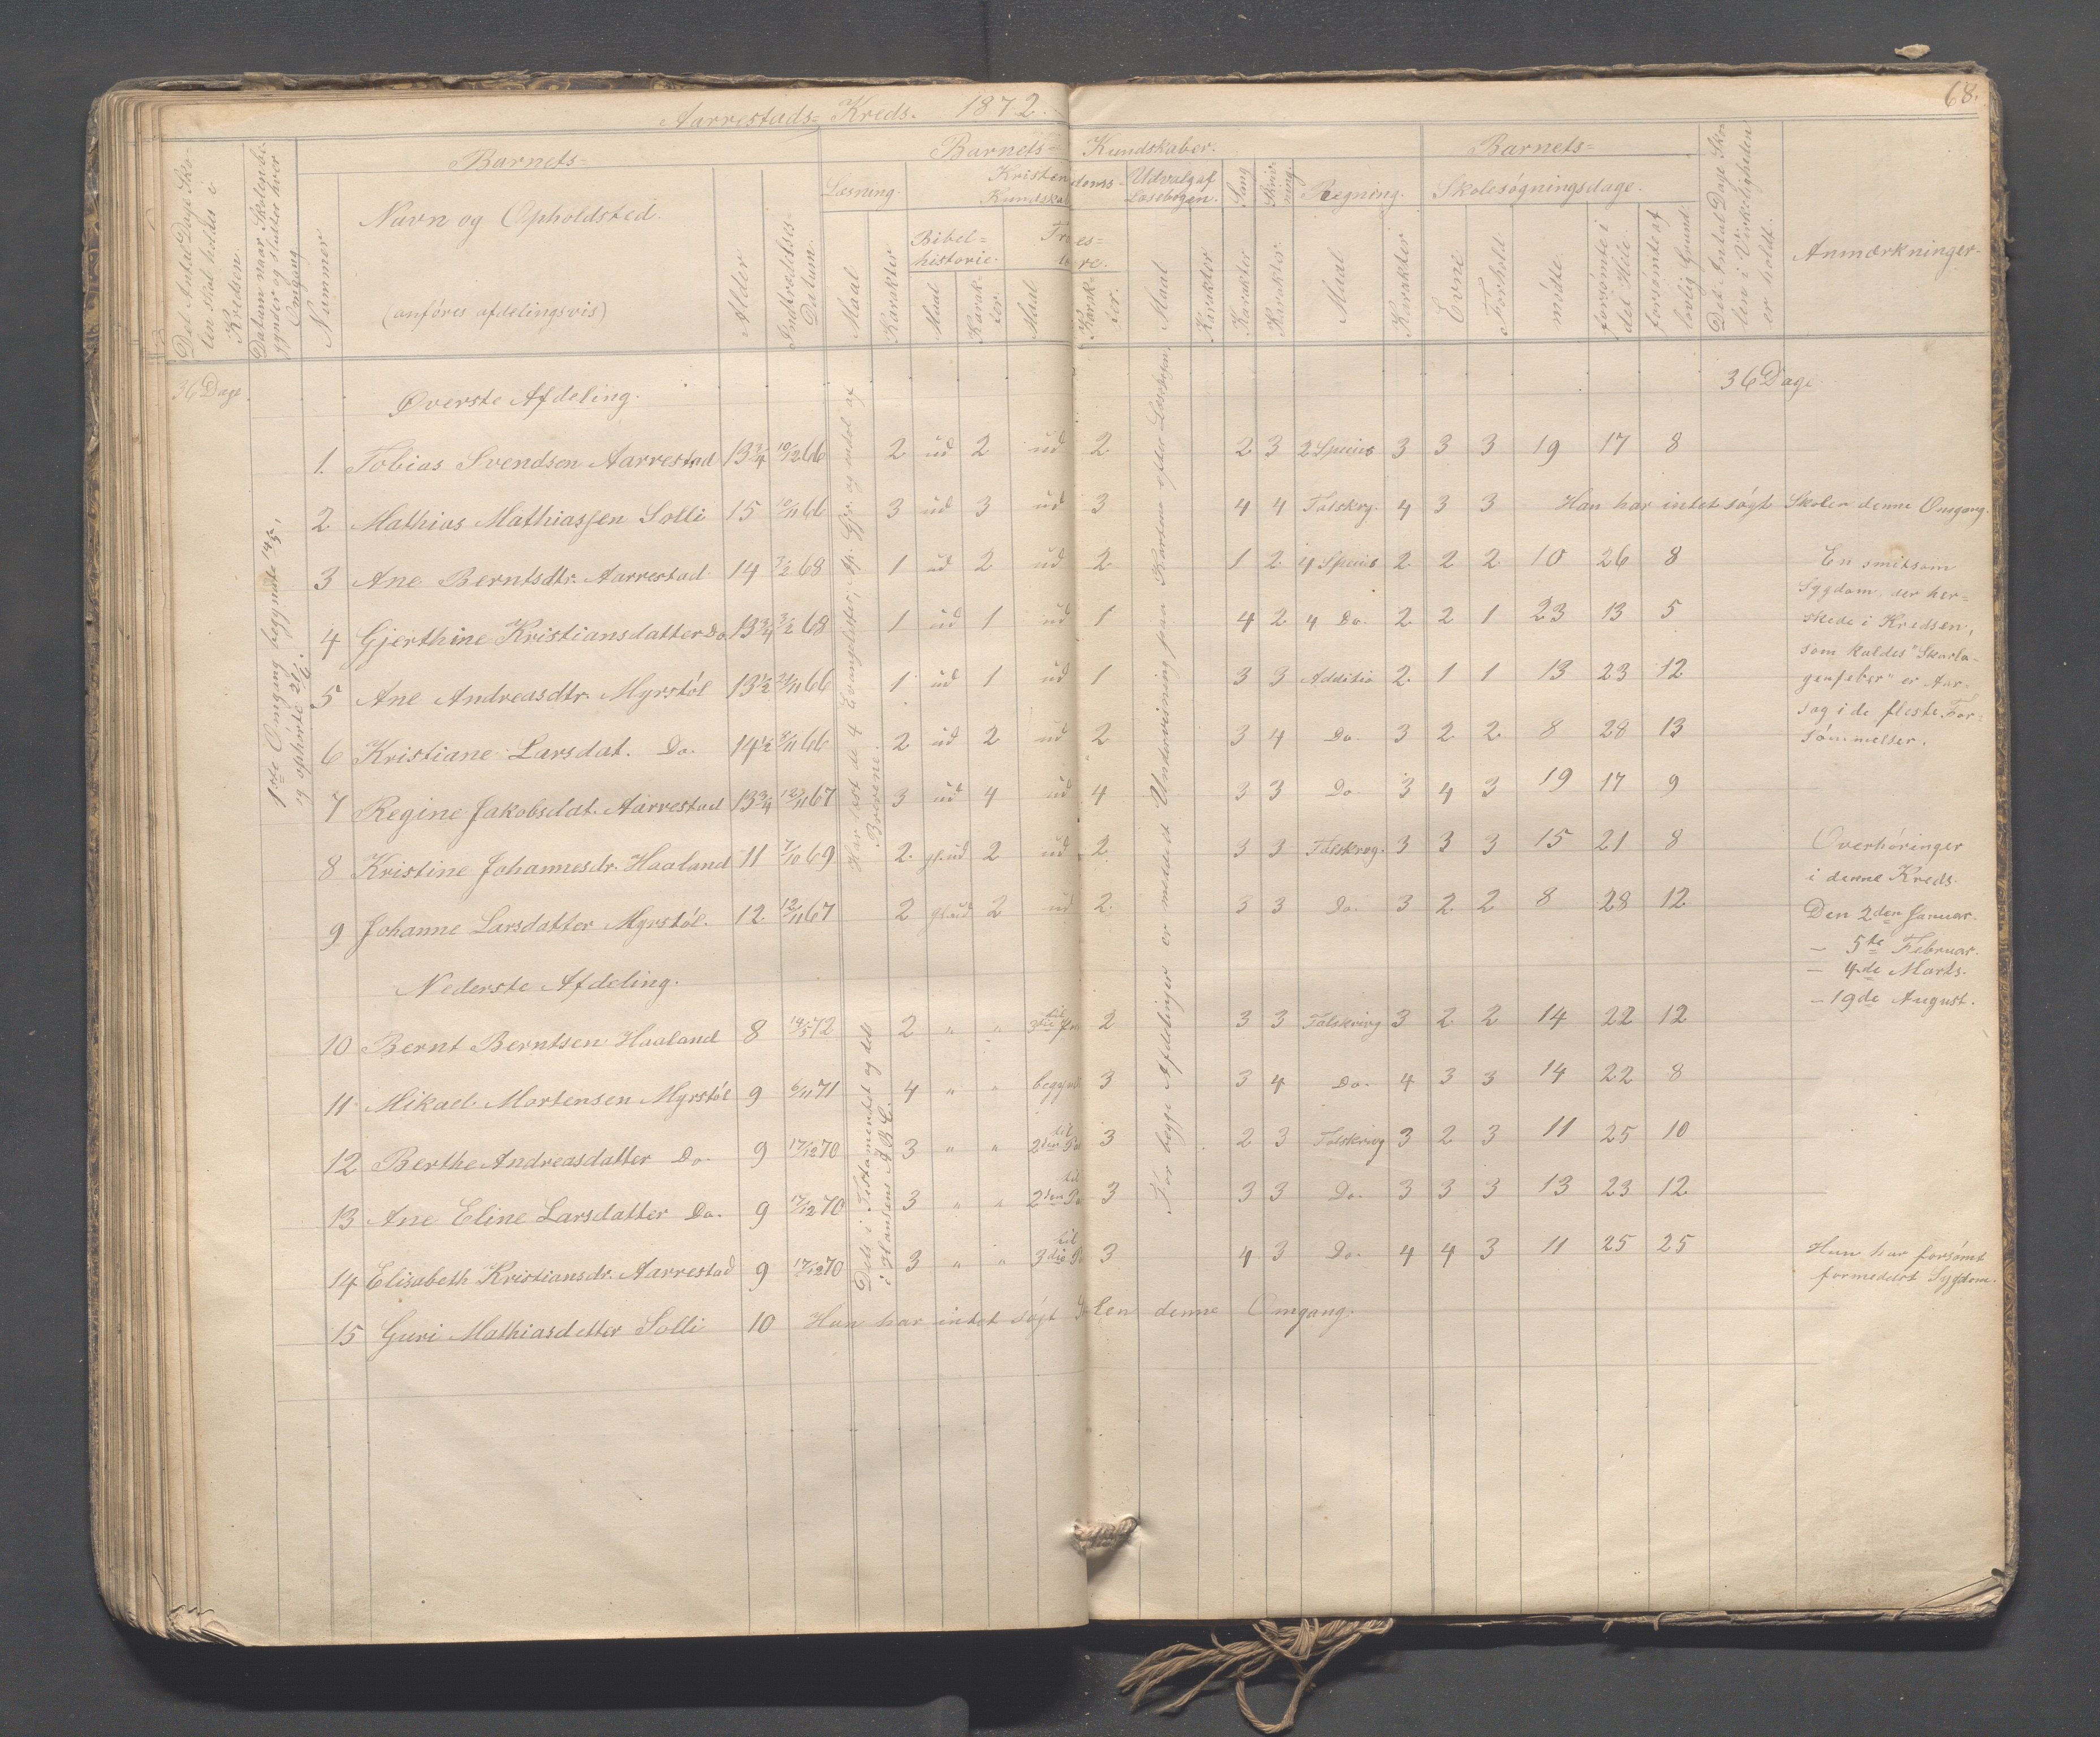 68.
Aarrestads= Kreds. 1872.
Det Antal Dage Sko-
len skal holdes i
Kredsen.
Datum naar Skolen be-
gynder og slutter hver
Omgang
Nummer
Barnets=
Navn og Opholdsted.
(anføres afdelingsvis)
Alder
Indtrædelses=
Datum.
Barnets= Kundskaber.
Læsning.
Maal
Karakter
Kristendoms=
Kundskab
Bibel=
historie.
Maal
Karak-
ter.
Troes=
lære.
Maal
Karak-
ter.
Udvalg af
Læsebogen.
Maal
Karakter
Sang
Karakter
Skriv-
ning.
Karakter.
Regning.
Maal
Karakter
Barnets=
Evne
Forhold.
Skolesøgningsdage.
mødte
forsømte i
det Hele.
forsømte af
lovlig Grund.
Det Antal Dage Sko-
len i Virkeligheden
er holdt.
Anmærkninger.
36 Dage
36 Dage.
1ste Omgang begyndte 14/5,
og ophørte 27/6.
Øverste Afdeling.
Har læst de 4 Evangelister, Ap. Gjer. og endel af
Brevene.
For begge Afdelinger er meddelt Undervisning paa Karterne efter Læsebogen,
1. Tobias Svendsen Aarrestad 13 3/4 10/12 66 2 ud 2 ud 2 2 3 2 Species 3 3 3 19 17 8
2 Mathias Mathiassen Solli 15 10/11 66 3 ud 3 ud 3 4 4 Talskrg. 4 3 3 Han har intet søgt Skolen denne Omgang.
3 Ane Berntsdtr. Aarrestad 14 7/2 68 1 ud 2 ud 2 1 2 4 Species 2 2 2 10 26 8
4 Gjerthine Kristiansdatter Do 13 3/4 3/2 68 1 ud 1 ud 1 4 2 4 Do. 2 2 1 23 13 5
5 Ane Andreasdtr. Myrstøl 13 1/2 21/11 66 1 ud 1 ud 1 3 3 Additio 2 1 1 13 23 12
6 Kristiane Larsdat. Do. 14 1/2 8/11 66 2 ud 2 ud 2 3 4 Do. 3 2 2 8 28 13
7 Regine Jakobsdat. Aarrestad 13 3/4 12/11 67 3 ud 4 ud 4 3 3 Do. 3 4 3 19 17 9
8 Kristine Johannesdr. Haaland 11 7/10 69 2 gl.ud 2 ud 2 3 3 Talskrvg. 3 3 3 15 21 8
9 Johanne Larsdatter Myrstøl. 12 12/11 67 2 gl.ud 2 ud 2 3 3 Do. 3 2 2 8 28 12
En smitsom
Sygdom, der her=
skede i Kredsen,
som kaldes "Skarla-
gensfeber" er Aar-
sag i de fleste For-
sømmelser.
Overhøringer
i denne Kreds.
Den 2den Januar.
— 5te Februar.
— 4de Marts.
— 19de August.
Nederste Afdeling.
Dels i Testamentet og dels
i Hansens A.B.C.
10 Bernt Berntsen Haaland 8 14/5 72 2 " " til 3die 2 3 3 Talskrivg 3 2 2 14 22 12
11 Mikael Mortensen Myrstøl 9 6/11 71 4 " " 3 3 4 Do. 4 3 3 14 22 8
12 Berthe Andreasdatter Do. 9 17/12 70 3 " " til 2den Pa 3 2 3 Talskrivg 3 2 3 11 25 10
13 Ane Eline Larsdatter Do. 9 17/12 70 3 " " til 2den Pa 3 3 3 Do. 3 3 3 13 23 12
14 Elisabeth Kristiansdr. Aarrestad 9 17/12 70 3 " " til 3die Pa 3 4 3 Do. 4 4 3 11 25 25 Hun har forsømt
formedelst Sygdom.
15 Guri Mathiasdatter Solli 10 Hun har intet søgt denne Omgang.